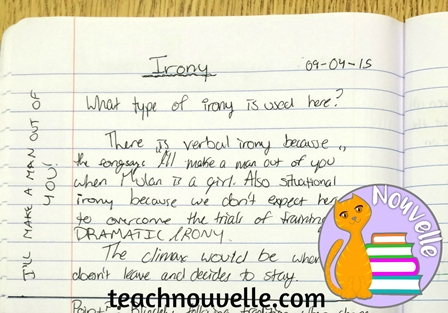 Irony
09-04-15
What type of irony is used here?
There is verbal irony because
the song says "I'll make a man out of you
when Mulan is a girl. Also situational
irony because we don't expect her
to overcome the trials of training
DRAMATIC IRONY.
The climax would be when
doesn't leave and decides to stay.
I'LL MAKE A MAN OUT OF
YOU!
Nouvelle
teachnouvelle.com